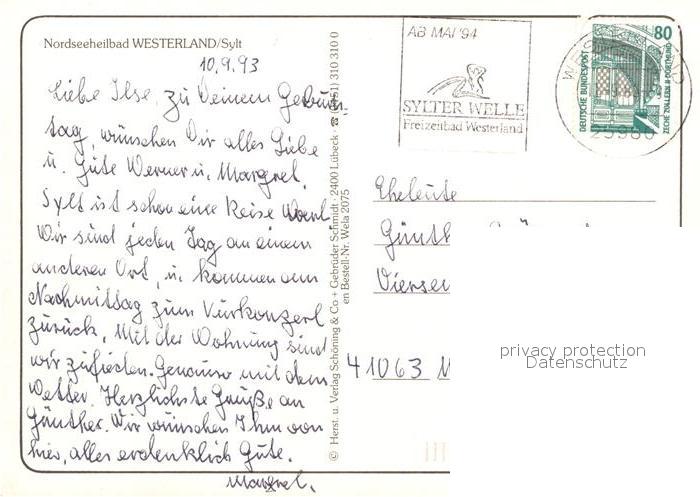 Nordseeheilbad WESTERLAND/Sylt
10.9.93
Liebe Ilse, zu Deinem Geburts-
tag, wünschen Dir alles Liebe
u. Gute Werner u. Margret.
Sylt ist schon eine Reise Wert
Wir sind jeden Tag an einem
anderen Ort, u. kommen am
Nachmittag zum Kurkonzert
zurück. Mit der Wohnung sind
wir zufrieden. Genauso mit dem
Wetter. Herzlichste Grüße an
Günther. Wir wünschen Ihm von
hier, alles erdenklich Gute.
Margret.
© Herst. u. Verlag Schöning & Co + Gebrüder Schmidt · 2400 Lübeck · ☎ (0451) 310 310 0
en Bestell-Nr. Wela 2075
AB MAI '94
SYLTER WELLE
Freizeitbad Westerland
80
DEUTSCHE BUNDESPOST
ZECHE ZOLLERN II · DORTMUND
25980
Eheleute
Günth
Vierse
41063 M
privacy protection
Datenschutz